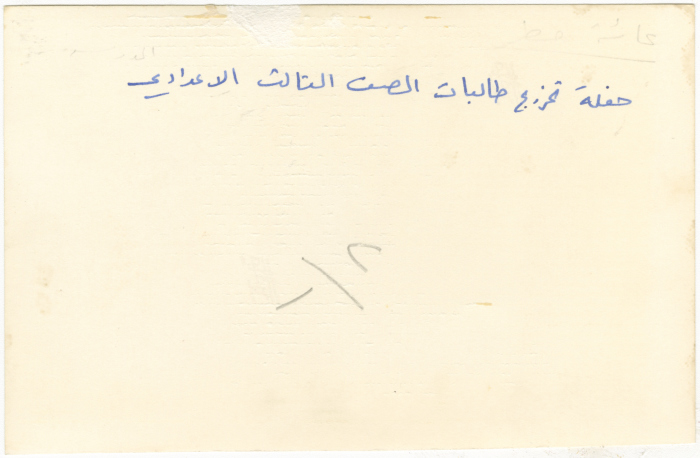 حفلة تخرج طالبات الصف الثالث الاعدادي